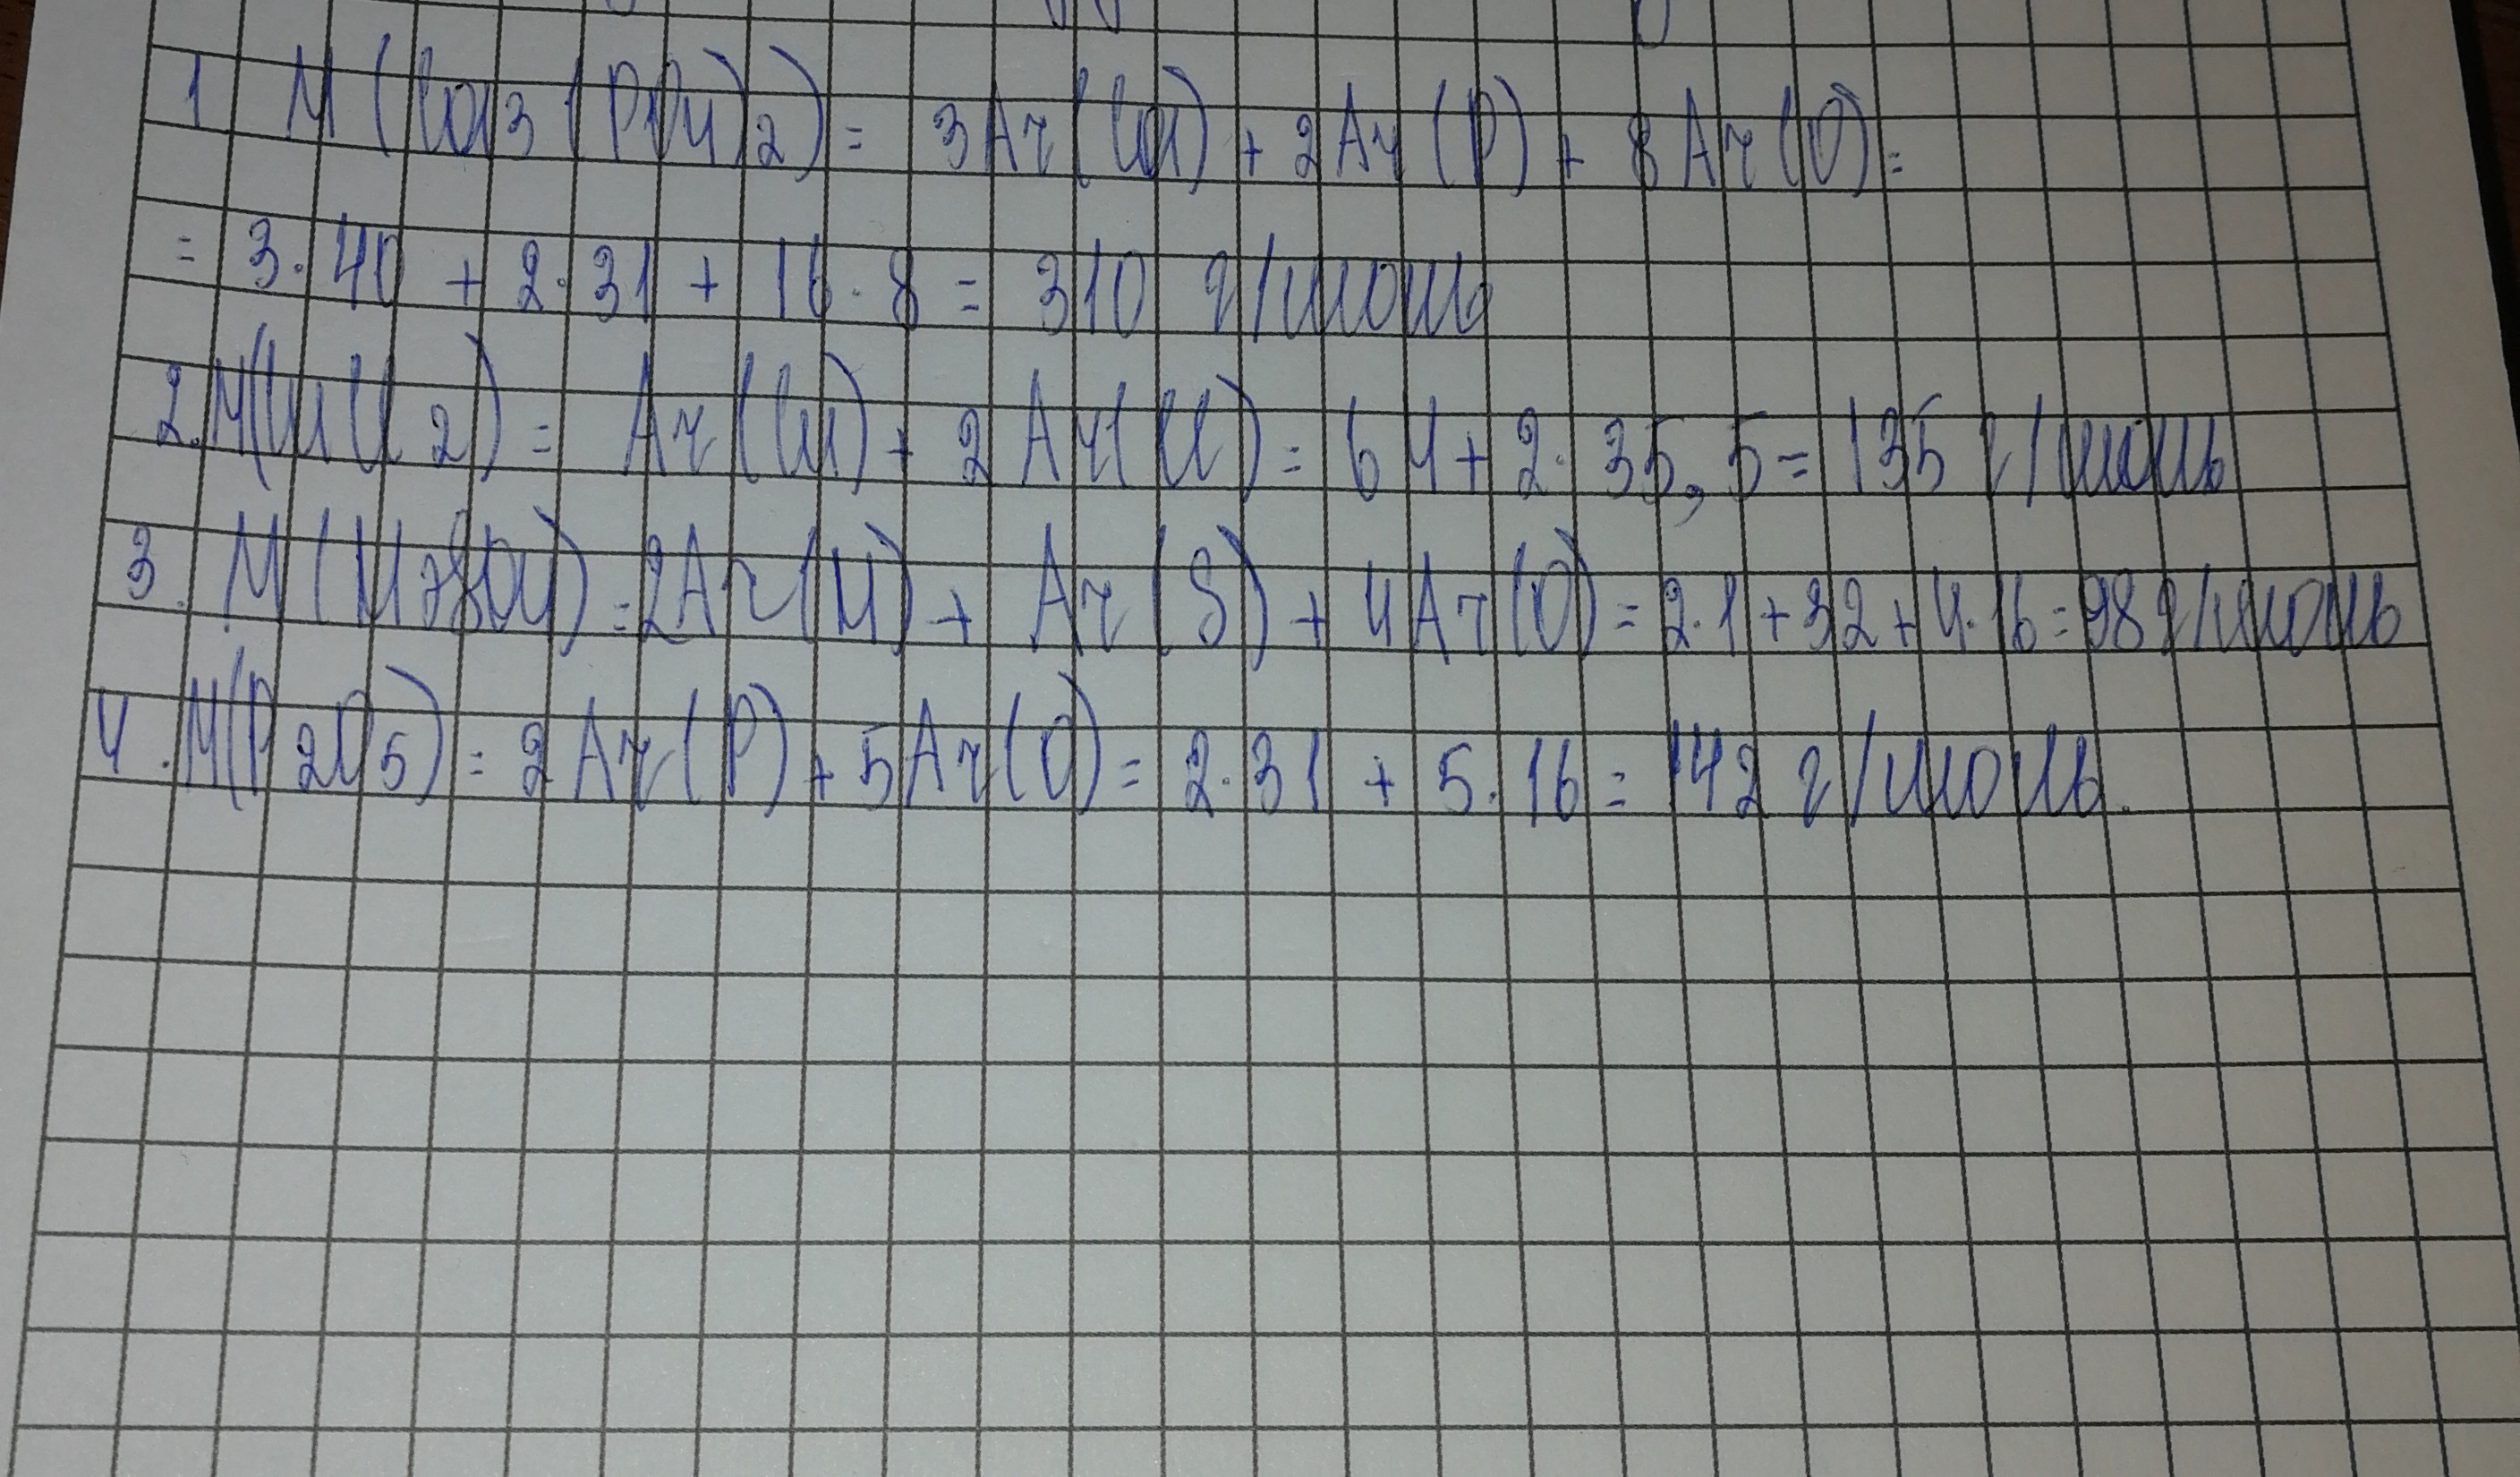 1 M(Ca3(PO4)2) = 3Ar(Ca) + 2Ar(P) + 8Ar(O) =
= 3·40 + 2·31 + 16·8 = 310 г/моль
2. M(CuCl2) = Ar(Cu) + 2Ar(Cl) = 64 + 2·35,5 = 135 г/моль
3. M(H2SO4) = 2Ar(H) + Ar(S) + 4Ar(O) = 2·1 + 32 + 4·16 = 98 г/моль
4. M(P2O5) = 2Ar(P) + 5Ar(O) = 2·31 + 5·16 = 142 г/моль.